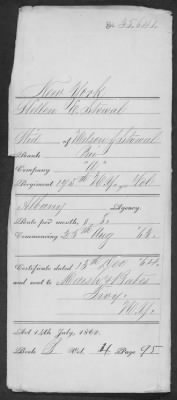 No. 35,641.
New York
Hellen E. Stoval
Wid of Wilson J. Stoval
Rank Pri
Company "H"
Regiment 195th N.Y. Vol.
Albany Agency.
Rate per month, 8
Commencing 25th Aug '64.
Certificate dated 15th Nov '64.
and sent to Marsh & Bates
Troy.
N.Y.
Act 14th July, 1862.
Book Vol. 4 Page 95